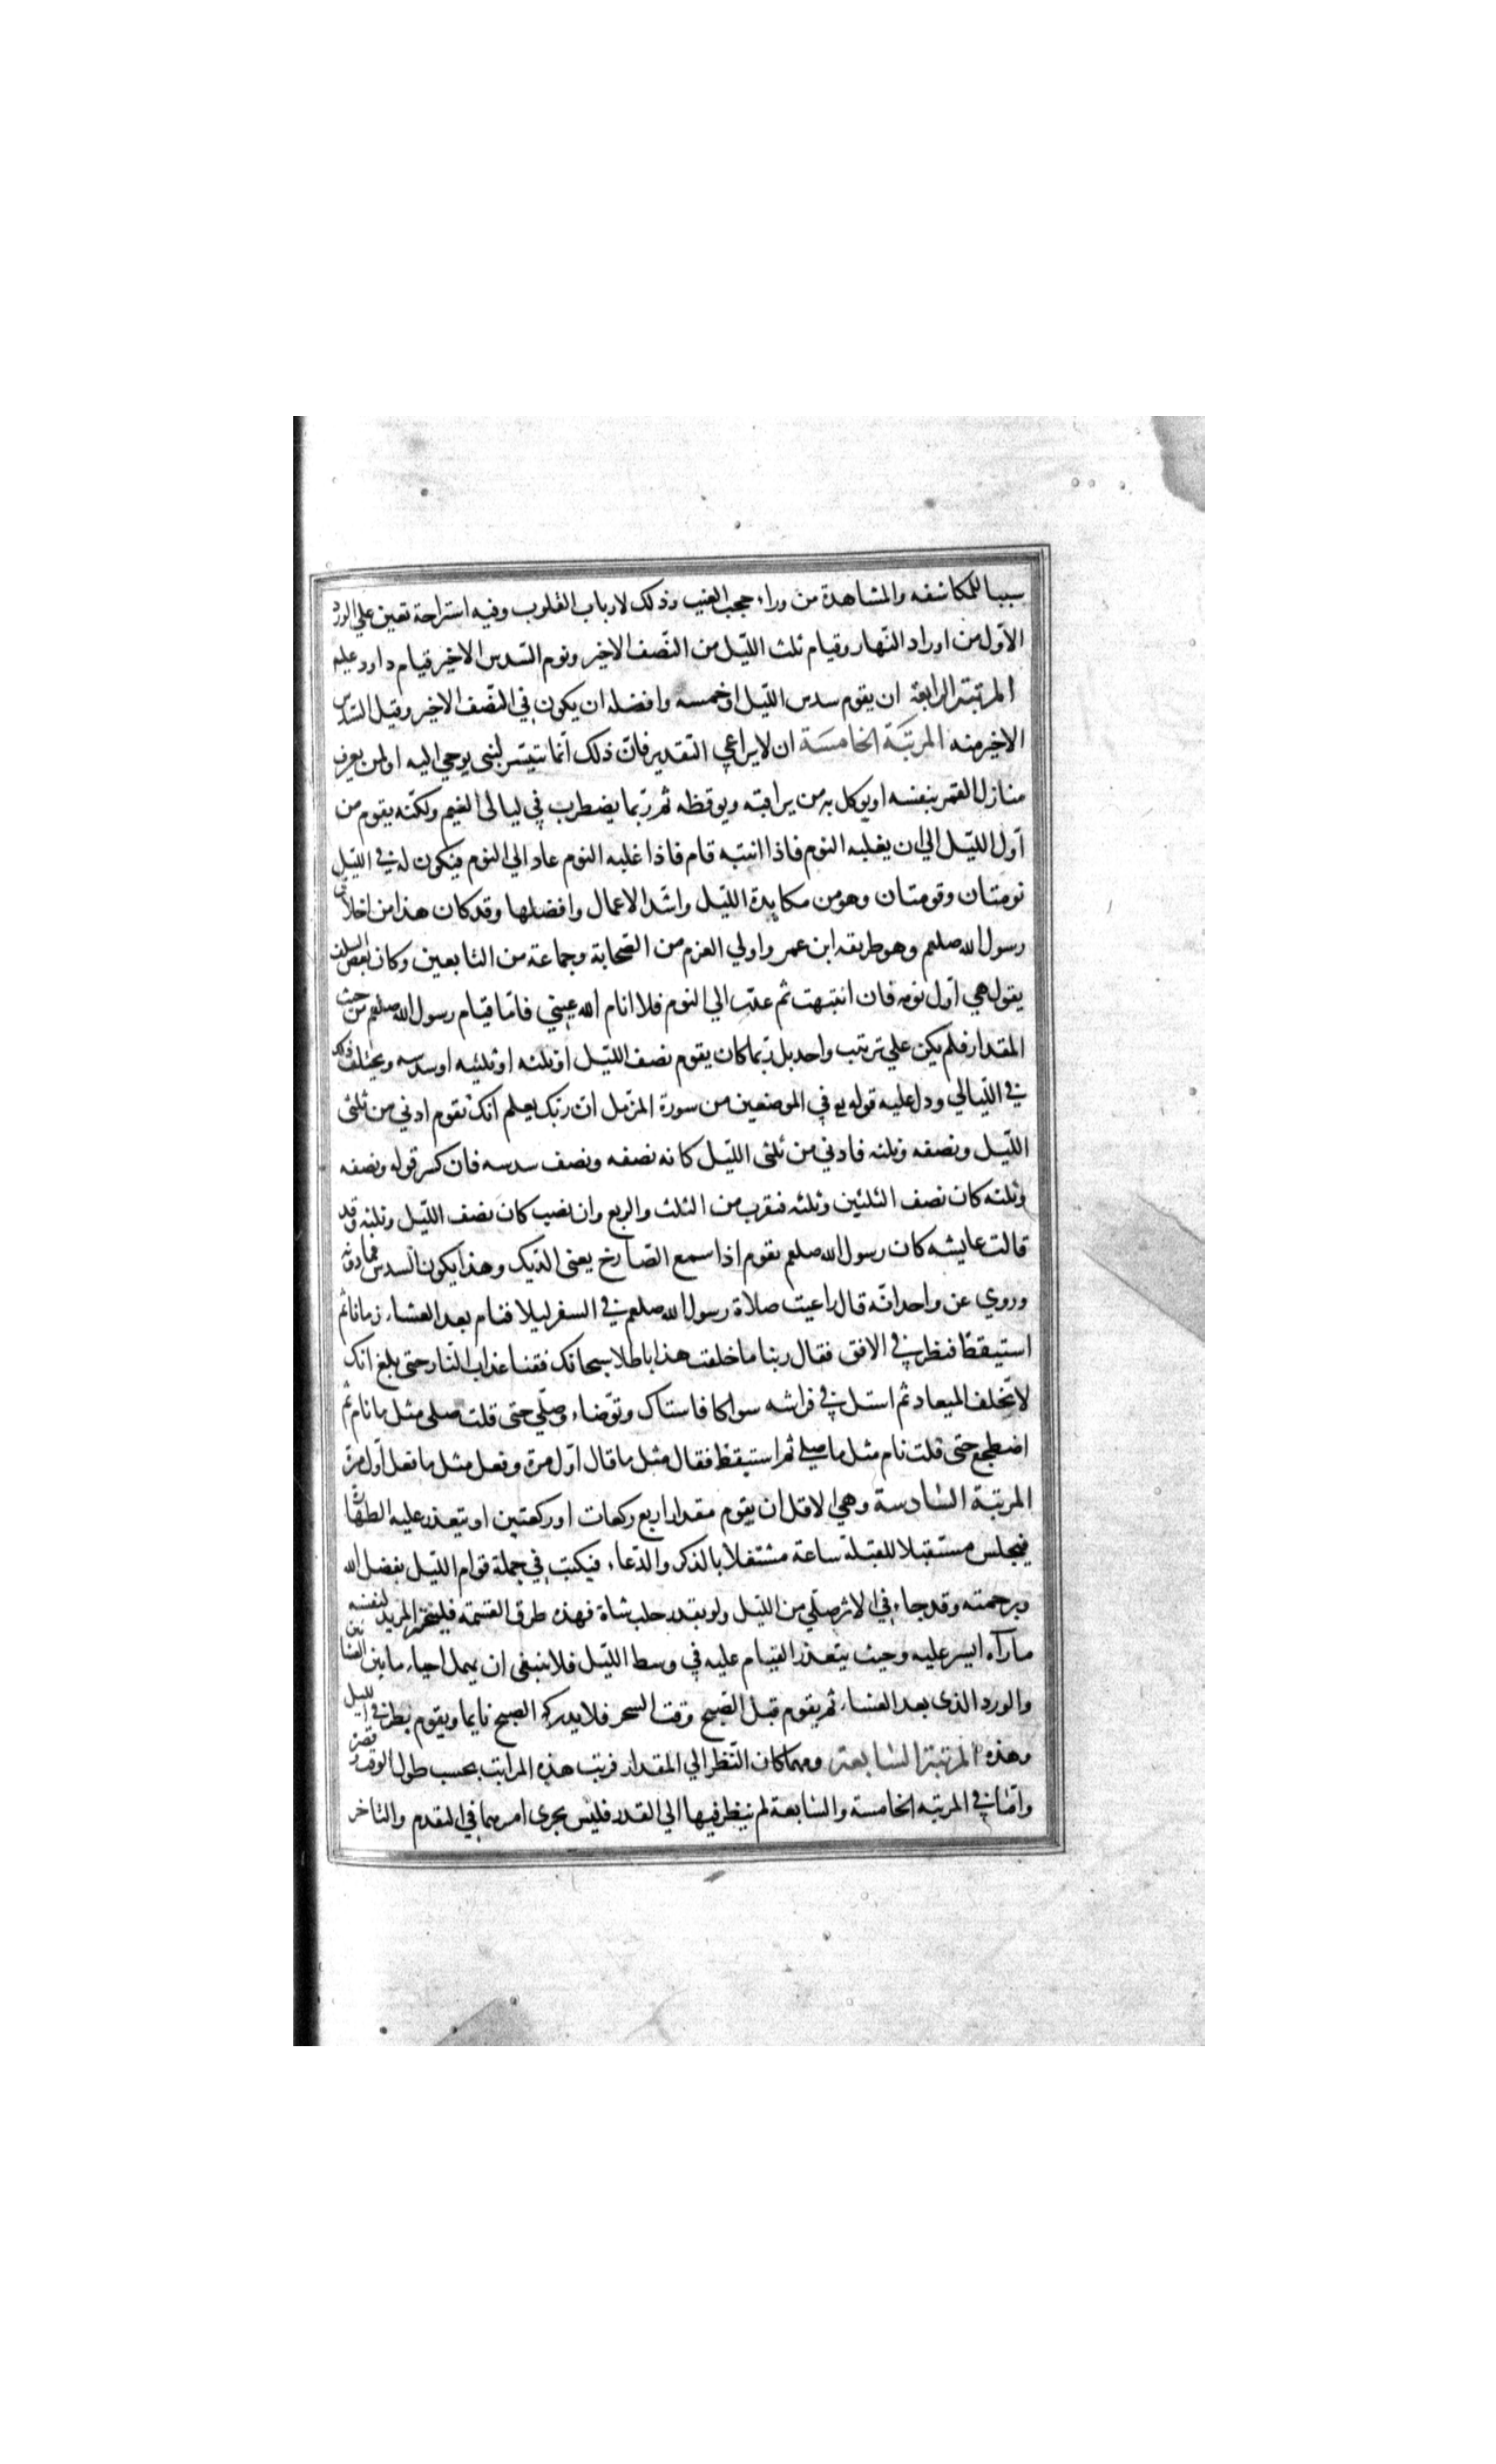 سببا للمكاشفه والمشاهدة من وراء حجب الغيب وذلك لارباب القلوب وفيه استراحة تعين علي الورد
الاوّل من اوراد النّهار وقيام ثلث اللّيل من النّصف الاخير ونوم السّدس الاخير قيام داود عليه
المرتبة الرابعة ان يقوم سدس اللّيل او خمسه وافضله ان يكون في النّصف الاخير وقبل السّدس
الاخير منه المرتبة الخامسة ان لا يراعي التّقدير فانّ ذلك انّما تتيسّر لنبى يوحي اليه او لمن يعرف
منازل القمر بنفسه او يوكل به من يراقبه ويوقظه ثم ربّما يضطرب في ليالى الغيم ولكنّه يقوم من
اوّل اللّيل الي ان يغلبه النوم فاذا انتبه قام فاذا غلبه النوم عاد الي النوم فيكون له في اللّيل
نومتان وقومتان وهو من مكابدة اللّيل واشدّ الاعمال وافضلها وقد كان هذا من اخلاق
رسول الله صلعم وهو طريقه ابن عمر واولي العزم من الصّحابة وجماعة من التابعين وكان بعض السلف
يقول هي اوّل نومه فان انتبهت ثم عدت الي النوم فلا انام الله عيني فامّا قيام رسول الله صلعم من حيث
المقدار فلم يكن علي ترتيب واحد بل ربّما كان يقوم نصف اللّيل او ثلثه او ثلثيه او سدسه ويختلف ذلك
في اللّيالي ودل عليه قوله تع في الموضعين من سورة المزّمل انّ ربّك يعلم انّك تقوم ادني من ثلثى
اللّيل ونصفه وثلثه فادني من ثلثى اللّيل كانه نصفه ونصف سدسه فان كسر قوله ونصفه
وثلثه كان نصف الثلثين وثلثه فيقرب من الثلث والربع وان نصب كان نصف اللّيل وثلثه وقد
قالت عايشه كان رسول الله صلعم يقوم اذا سمع الصّارخ يعنى الدّيك وهذا يكون السدس فما دونه
وروي عن واحد انّه قال راعيت صلاة رسول الله صلعم في السفر ليلا فنام بعد العشاء زمانا ثم
استيقظ فنظر في الافق فقال ربنا ما خلقت هذا باطلا سبحانك فقنا عذاب النّار حتى بلغ انك
لا تخلف الميعاد ثم استل في فراشه سواكا فاستاك وتوّضاء وصلّي حتى قلت صلى مثل ما نام ثم
اضطجع حتى قلت نام مثل ما صلي ثم استيقظ فقال مثل ما قال اوّل مرّة وفعل مثل ما فعل اوّل مرّة
المرتبة السّادسة وهي الاقل ان يقوم مقدار اربع ركعات او ركعتين او يتعذر عليه الطهارة
فيجلس مستقبلا للقبلة ساعة مشتغلا بالذكر والدّعاء فيكتب في جملة قوام اللّيل بفضل الله
وبرحمته وقد جاء في الاثر صلّي من اللّيل ولو بقدر حلب شاة فهذه طرق القسمة فليختر المريد لنفسه
ما راه ايسر عليه وحيث يتعذر القيام عليه في وسط اللّيل فلا ينبغى ان يهمل احياء ما بين العشائين
والورد الذى بعد العشاء ثم يقوم قبل الصّبح وقت السحر فلا يدركه الصبح نايما ويقوم بطرفي الليل
وهذه المرتبة السّابعة ومهما كان النّظر الي المقدار فرتب هذه المراتب بحسب طول الوقت وقصره
وامّا في المرتبه الخامسة والسّابعة لم ينظر فيهما الي القدر فليس يجرى امرهما في التقدم والتاخر